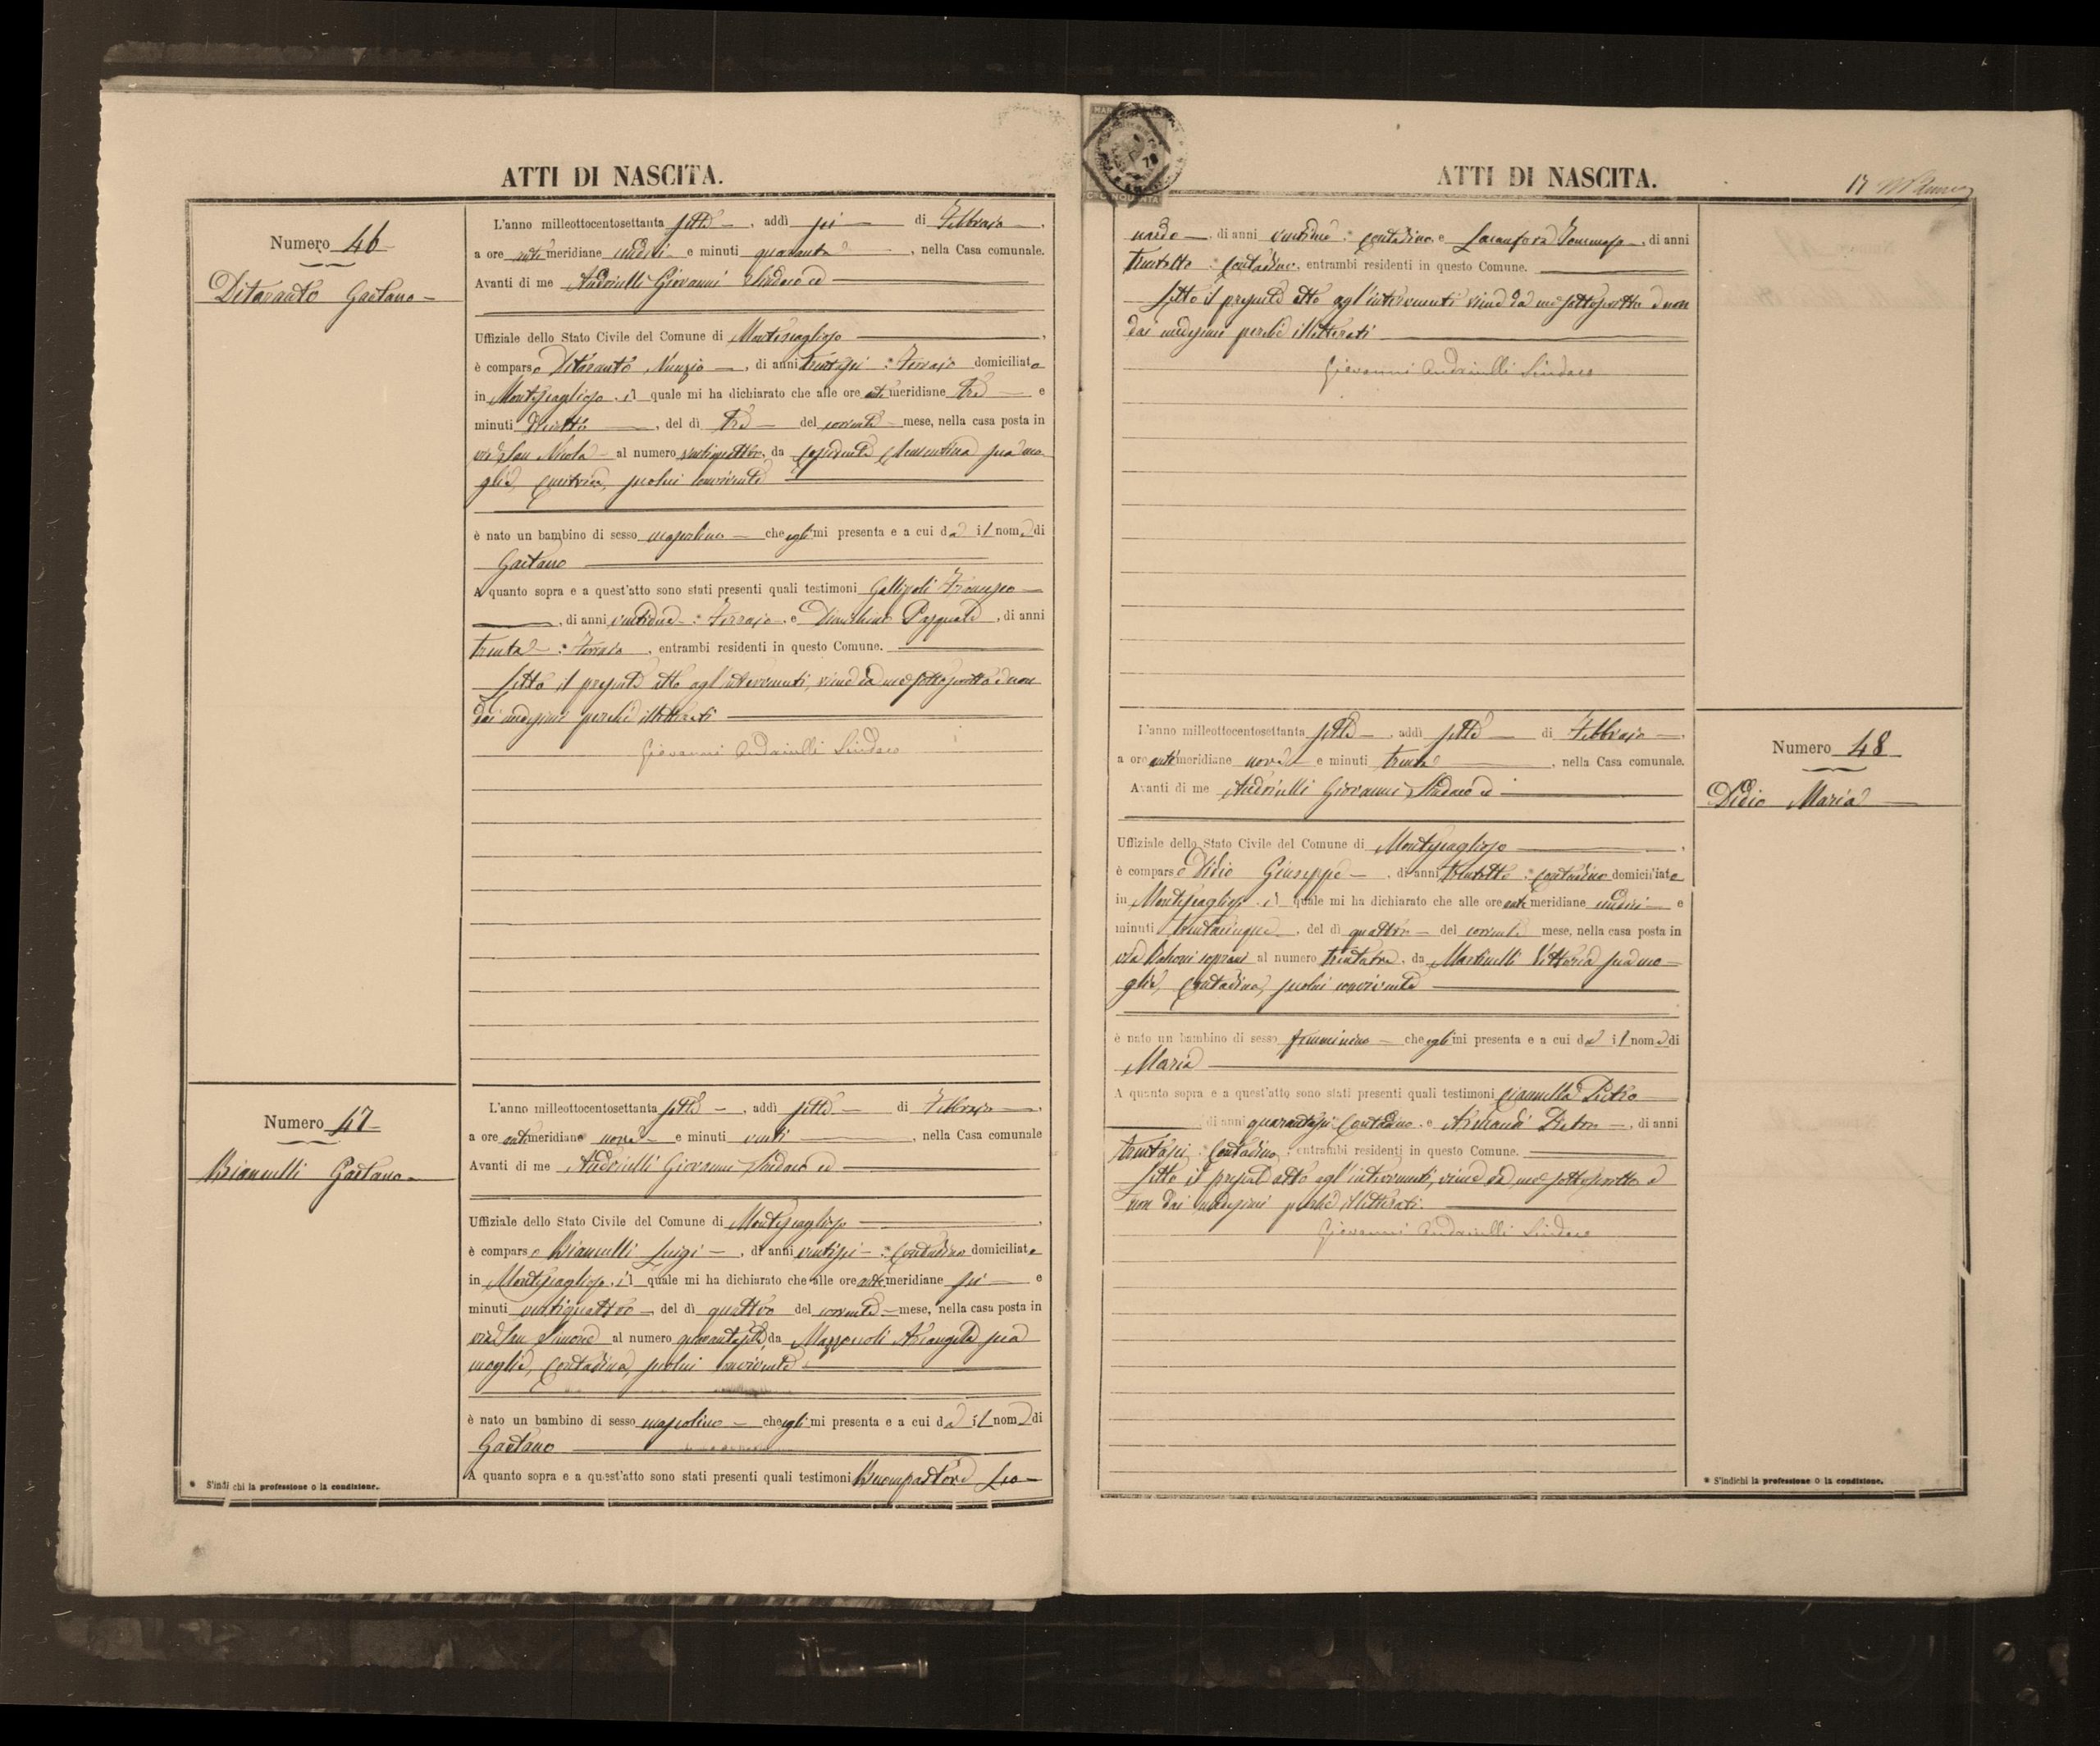 ATTI DI NASCITA.
Numero 46
Ditaranto Gaetano
L'anno millottocentosettanta sette, addì sei di Febbraio,
a ore antimeridiane undici e minuti quaranta, nella Casa comunale.
Avanti di me Andriulli Giovanni Sindaco ed
Uffiziale dello Stato Civile del Comune di Montescaglioso,
è comparso Ditaranto Nunzio, di anni trentasei * Ferraio domiciliato
in Montescaglioso, il quale mi ha dichiarato che alle ore antimeridiane tre e
minuti diciotto, del dì tre del corrente mese, nella casa posta in
via San Nicola al numero ventiquattro, da Clementina sua mo-
glie, secolui convivente
è nato un bambino di sesso mascolino che egli mi presenta e a cui dà il nome di
Gaetano
A quanto sopra e a quest'atto sono stati presenti quali testimoni Gallipoli Francesco
, di anni ventidue * Ferraio, e Pasquale, di anni
trenta * Ferraio, entrambi residenti in questo Comune.
Letto il presente atto agl'intervenuti, viene da me sottoscritto e non
dai medesimi perché illetterati
Giovanni Andriulli Sindaco
Numero 47
Bianculli Gaetano
L'anno millottocentosettanta sette, addì sette di Febbraio,
a ore antimeridiane nove e minuti venti, nella Casa comunale
Avanti di me Andriulli Giovanni Sindaco ed
Uffiziale dello Stato Civile del Comune di Montescaglioso,
è comparso Bianculli Luigi, di anni ventisei * Contadino domiciliato
in Montescaglioso, il quale mi ha dichiarato che alle ore antimeridiane sei e
minuti ventiquattro, del dì quattro del corrente mese, nella casa posta in
via San Simone al numero quarantasette, da Mazzoccoli Arcangela sua
moglie, Contadina, secolui convivente
è nato un bambino di sesso mascolino che egli mi presenta e a cui dà il nome di
Gaetano
A quanto sopra e a quest'atto sono stati presenti quali testimoni Buompastore Leo-
* S'indichi la professione o la condizione.
ATTI DI NASCITA.
17
nardo, di anni ventidue * Contadino, e Locantore Tommaso, di anni
trentotto * Contadino, entrambi residenti in questo Comune.
Letto il presente atto agl'intervenuti viene da me sottoscritto e non
dai medesimi perché illetterati
Giovanni Andriulli Sindaco
L'anno millottocentosettanta sette, addì sette di Febbraio,
a ore antimeridiane nove e minuti trenta, nella Casa comunale.
Avanti di me Andriulli Giovanni Sindaco ed
Numero 48
Didio Maria
Uffiziale dello Stato Civile del Comune di Montescaglioso,
è comparso Didio Giuseppe, di anni trentotto * Contadino domiciliato
in Montescaglioso, il quale mi ha dichiarato che alle ore antimeridiane undici e
minuti trentacinque, del dì quattro del corrente mese, nella casa posta in
via soprani al numero trentatre, da Martinelli Vittoria sua mo-
glie, Contadina, secolui convivente
è nato un bambino di sesso femminino che egli mi presenta e a cui dà il nome di
Maria
A quanto sopra e a quest'atto sono stati presenti quali testimoni Ciannella Pietro
di anni quarantasei Contadino, e Pietro, di anni
trentasei * Contadino, entrambi residenti in questo Comune.
Letto il presente atto agl'intervenuti, viene da me sottoscritto e
non dai medesimi perché illetterati.
Giovanni Andriulli Sindaco
* S'indichi la professione o la condizione.